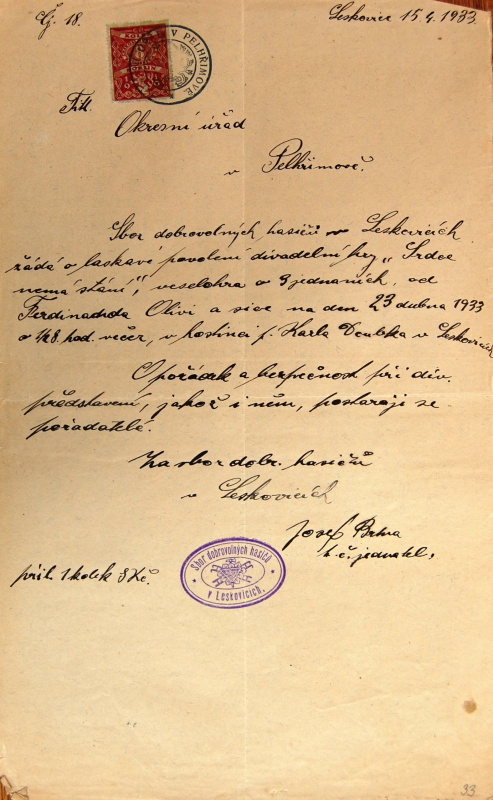 Čj. 18.
Leskovice 15.4.1933.
V PELHŘIMOVĚ
Titl.
Okresní úřad
v Pelhřimově.
Sbor dobrovolných hasičů v Leskovicích
řádá o laskavé povolení divadelní hry „Srdce
nemá stání", veselohra o 3 jednáních, od
Ferdinanda Olivi a sice na den 23 dubna 1933
o ½8. hod. večer, v hostinci p. Karla v Leskovicích
O pořádek a bezpečnost při div.
představení, jakož i něm, postarají se
pořadatelé.
Za sbor dobr. hasičů
v Leskovicích
Josef
t. č. jednatel.
Sbor dobrovolných hasičů
v Leskovicích.
příl. 1 kolek 8 Kč.
33